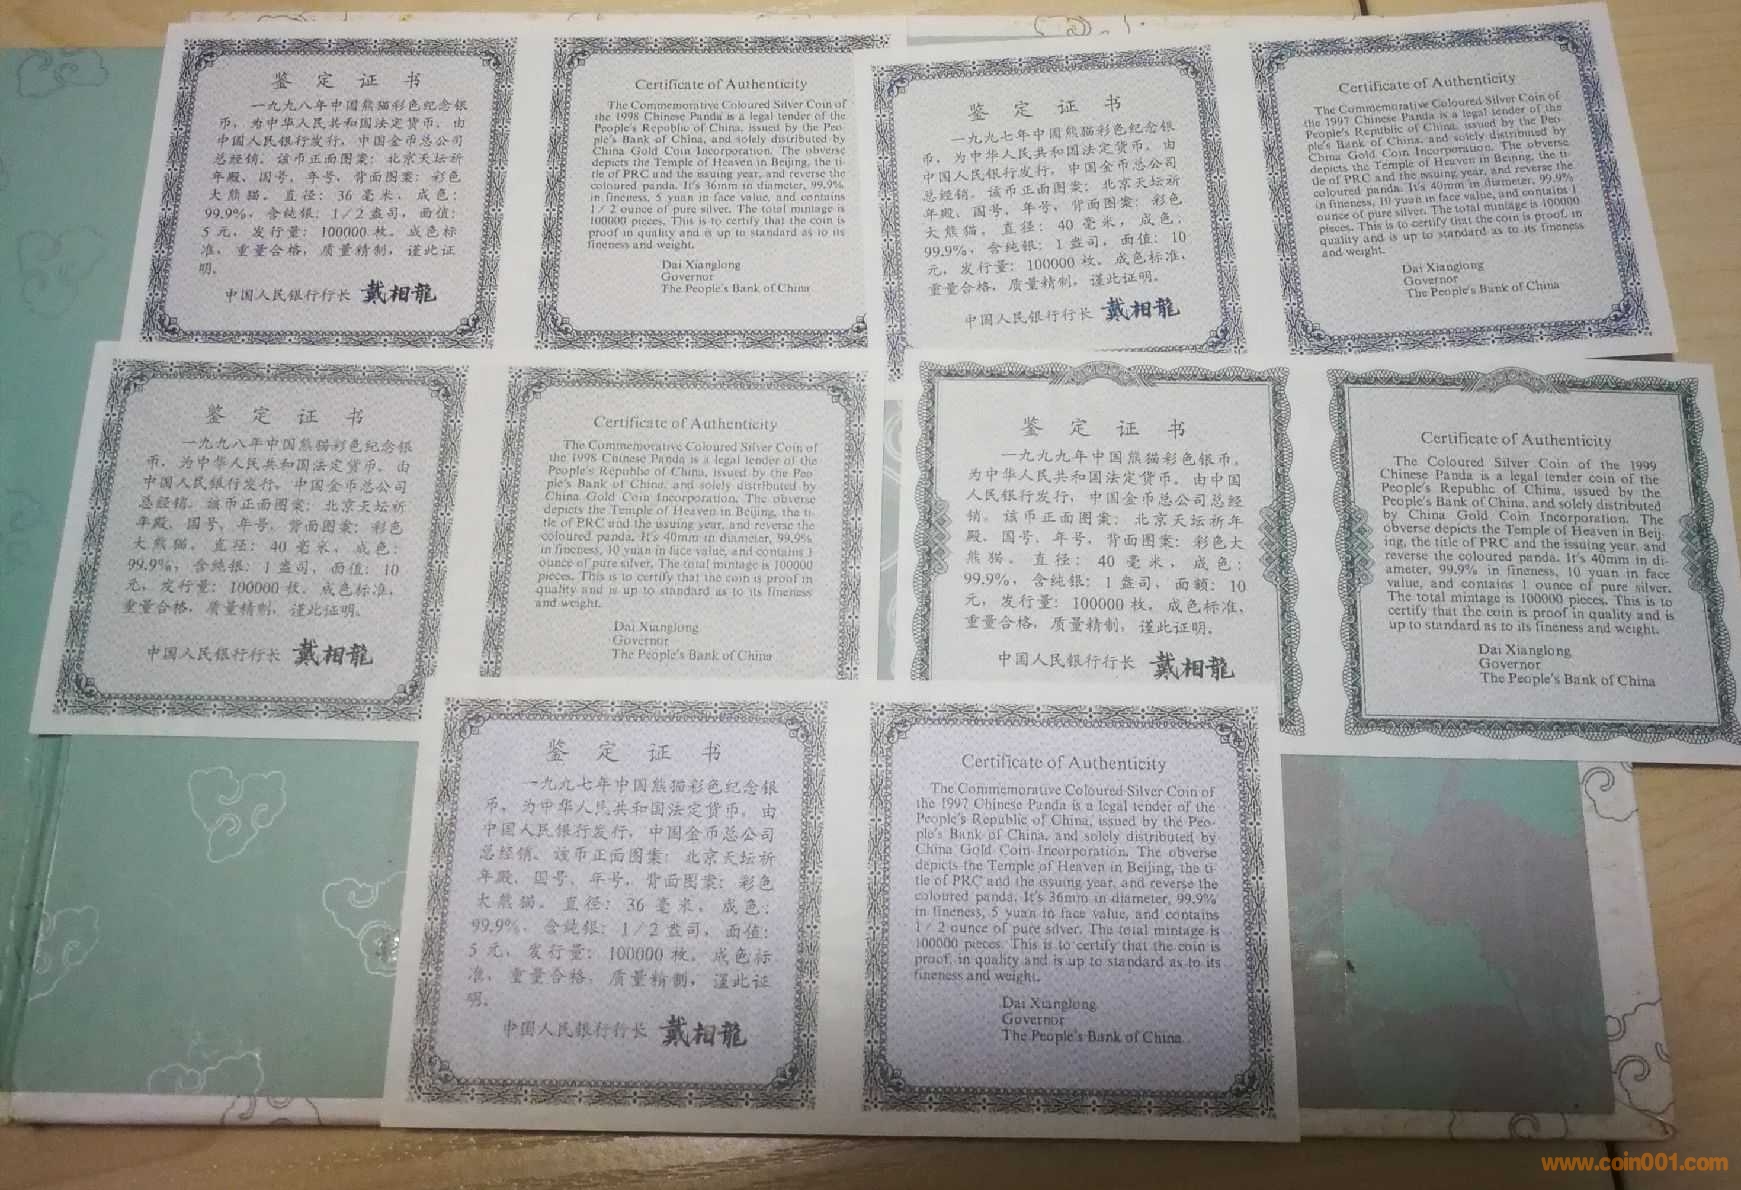 鉴定证书
一九九八年中国熊猫彩色纪念银
币，为中华人民共和国法定货币。由
中国人民银行发行，中国金币总公司
总经销。该币正面图案：北京天坛祈
年殿、国号、年号，背面图案：彩色
大熊猫。直径：36毫米，成色：
99.9%，含纯银：1/2盎司，面值：
5元，发行量：100000枚。成色标
准，重量合格，质量精制，谨此证
明。
中国人民银行行长 戴相龍
Certificate of Authenticity
The Commemorative Coloured Silver Coin of
the 1998 Chinese Panda is a legal tender of the
People's Republic of China, issued by the Peo-
ple's Bank of China, and solely distributed by
China Gold Coin Incorporation. The obverse
depicts the Temple of Heaven in Beijing, the ti-
tle of PRC and the issuing year, and reverse the
coloured panda. It's 36mm in diameter, 99.9%
in fineness, 5 yuan in face value, and contains
1/2 ounce of pure silver. The total mintage is
100000 pieces. This is to certify that the coin is
proof in quality and is up to standard as to its
fineness and weight.
Dai Xianglong
Governor
The People's Bank of China
鉴定证书
一九九七年中国熊猫彩色纪念银
币，为中华人民共和国法定货币。由
中国人民银行发行，中国金币总公司
总经销。该币正面图案：北京天坛祈
年殿、国号、年号，背面图案：彩色
大熊猫。直径：40毫米，成色：
99.9%，含纯银：1盎司，面值：10
元，发行量：100000枚。成色标准，
重量合格，质量精制，谨此证明。
中国人民银行行长 戴相龍
Certificate of Authenticity
The Commemorative Coloured Silver Coin of
the 1997 Chinese Panda is a legal tender of the
People's Republic of China, issued by the Peo-
ple's Bank of China, and solely distributed by
China Gold Coin Incorporation. The obverse
depicts the Temple of Heaven in Beijing, the ti-
tle of PRC and the issuing year, and reverse the
coloured panda. It's 40mm in diameter, 99.9%
in fineness, 10 yuan in face value, and contains 1
ounce of pure silver. The total mintage is 100000
pieces. This is to certify that the coin is proof, in
quality and is up to standard as to its fineness
and weight.
Dai Xianglong
Governor
The People's Bank of China
鉴定证书
一九九八年中国熊猫彩色纪念银
币，为中华人民共和国法定货币。由
中国人民银行发行，中国金币总公司
总经销。该币正面图案：北京天坛祈
年殿、国号、年号，背面图案：彩色
大熊猫。直径：40毫米，成色：
99.9%，含纯银：1盎司，面值：10
元，发行量：100000枚。成色标准，
重量合格，质量精制，谨此证明。
中国人民银行行长 戴相龍
Certificate of Authenticity
The Commemorative Coloured Silver Coin of
the 1998 Chinese Panda is a legal tender of the
People's Republic of China, issued by the Peo-
ple's Bank of China, and solely distributed by
China Gold Coin Incorporation. The obverse
depicts the Temple of Heaven in Beijing, the ti-
tle of PRC and the issuing year, and reverse the
coloured panda. It's 40mm in diameter, 99.9%
in fineness, 10 yuan in face value, and contains 1
ounce of pure silver. The total mintage is 100000
pieces. This is to certify that the coin is proof in
quality and is up to standard as to its fineness
and weight.
Dai Xianglong
Governor
The People's Bank of China
鉴定证书
一九九九年中国熊猫彩色银币，
为中华人民共和国法定货币。由中国
人民银行发行，中国金币总公司总经
销。该币正面图案：北京天坛祈年
殿、国号、年号，背面图案：彩色大
熊猫。直径：40毫米，成色：
99.9%，含纯银：1盎司，面额：10
元，发行量：100000枚。成色标准，
重量合格，质量精制，谨此证明。
中国人民银行行长 戴相龍
Certificate of Authenticity
The Coloured Silver Coin of the 1999
Chinese Panda is a legal tender coin of the
People's Republic of China, issued by the
People's Bank of China, and solely distributed
by China Gold Coin Incorporation. The
obverse depicts the Temple of Heaven in Beij-
ing, the title of PRC and the issuing year, and
reverse the coloured panda. It's 40mm in di-
ameter, 99.9% in fineness, 10 yuan in face
value, and contains 1 ounce of pure silver.
The total mintage is 100000 pieces. This is to
certify that the coin is proof in quality and is
up to standard as to its fineness and weight.
Dai Xianglong
Governor
The People's Bank of China
鉴定证书
一九九七年中国熊猫彩色纪念银
币，为中华人民共和国法定货币。由
中国人民银行发行，中国金币总公司
总经销。该币正面图案：北京天坛祈
年殿、国号、年号，背面图案：彩色
大熊猫。直径：36毫米，成色：
99.9%，含纯银：1/2盎司，面值：
5元，发行量：100000枚。成色标
准，重量合格，质量精制，谨此证
明。
中国人民银行行长 戴相龍
Certificate of Authenticity
The Commemorative Coloured Silver Coin of
the 1997 Chinese Panda is a legal tender of the
People's Republic of China, issued by the Peo-
ple's Bank of China, and solely distributed by
China Gold Coin Incorporation. The obverse
depicts the Temple of Heaven in Beijing, the ti-
tle of PRC and the issuing year, and reverse the
coloured panda. It's 36mm in diameter, 99.9%
in fineness, 5 yuan in face value, and contains
1/2 ounce of pure silver. The total mintage is
100000 pieces. This is to certify that the coin is
proof, in quality and is up to standard as to its
fineness and weight.
Dai Xianglong
Governor
The People's Bank of China
www.coin001.com